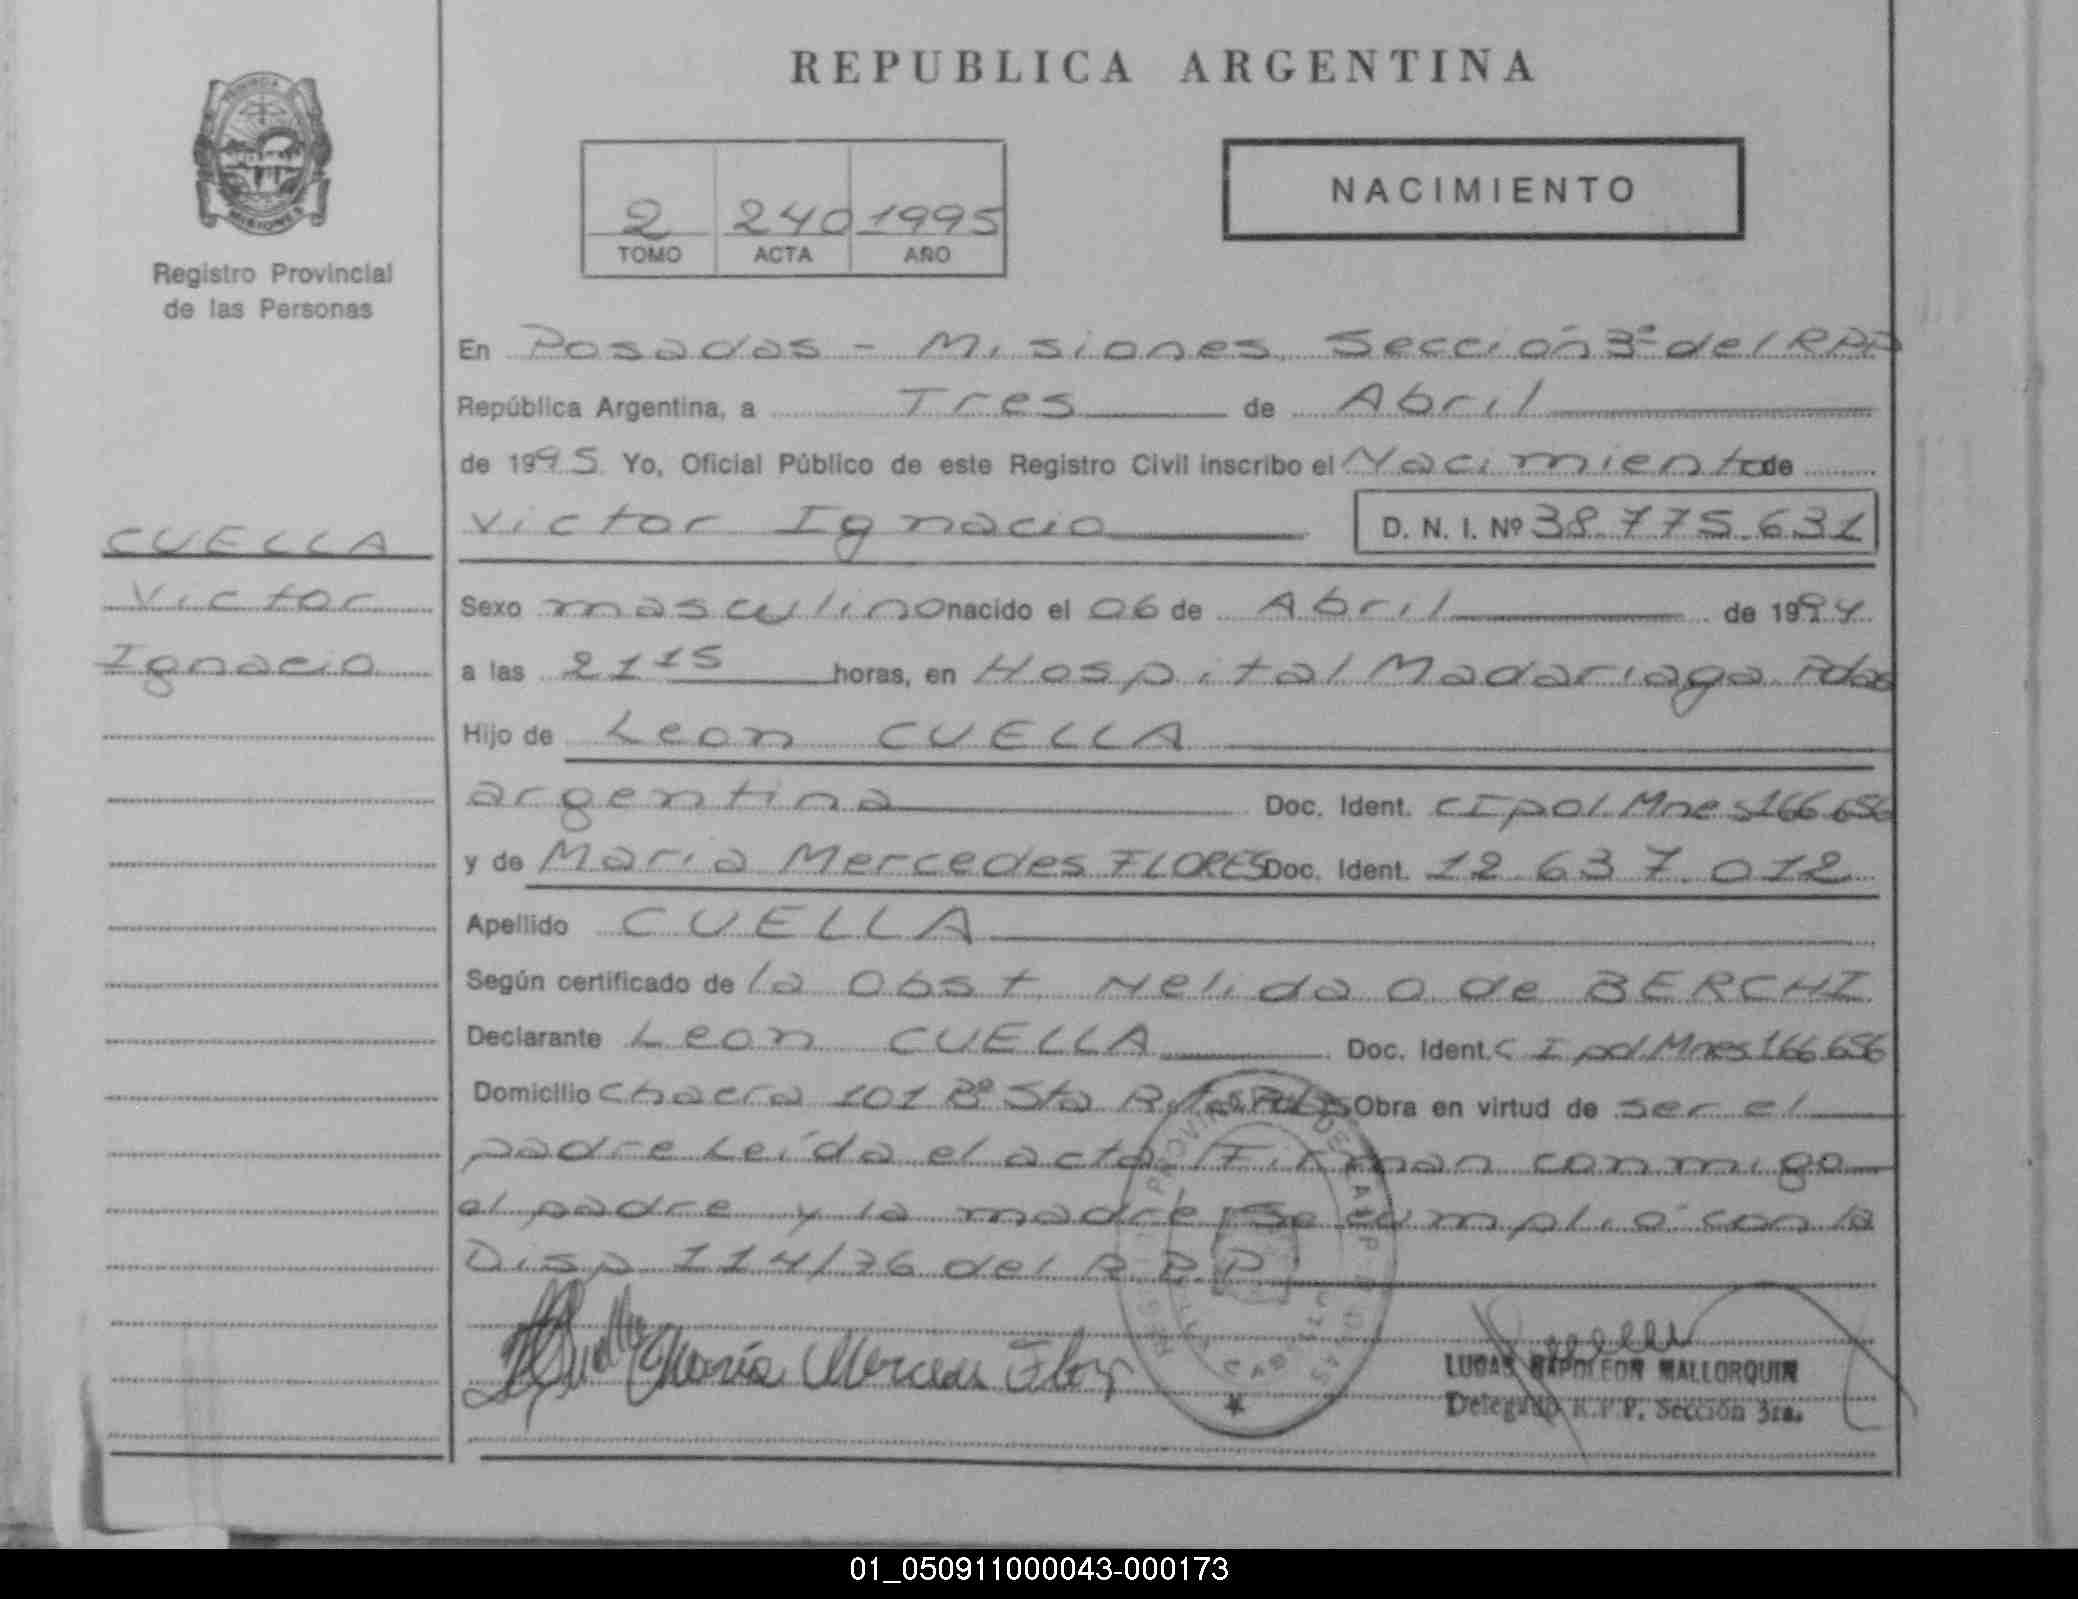 REPUBLICA ARGENTINA
PROVINCIA
MISIONES
Registro Provincial
de las Personas
2 240 1995
TOMO ACTA AÑO
NACIMIENTO
En Posadas - Misiones. Sección 3ª del RPP
República Argentina, a Tres de Abril
de 1995. Yo, Oficial Público de este Registro Civil inscribo el Nacimiento de
Victor Ignacio D. N. I. Nº 38.775.631
CUELLA
Victor
Ignacio
Sexo masculino nacido el 06 de Abril de 1994
a las 21 15 horas, en Hospital Madariaga Pdas
Hijo de Leon CUELLA
argentina Doc. Ident. CIpol Mnes 166.656
y de Maria Mercedes FLORES Doc. Ident. 12.637.012
Apellido CUELLA
Según certificado de la Obst. Nelida O. de BERCHI
Declarante Leon CUELLA Doc. Ident. C I pol Mnes 166.656
Domicilio Chacra 101 Bº Sta Rita Pdas Obra en virtud de ser el
padre Leída el acta, Firman conmigo
el padre y la madre, Se cumplió con la
Disp 114/76 del R.P.P.
María Mercedes Flores
LUCAS NAPOLEON MALLORQUIN
Delegado R.P.P. Sección 3ra.
01_050911000043-000173